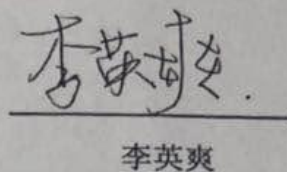 李英爽.
李英爽